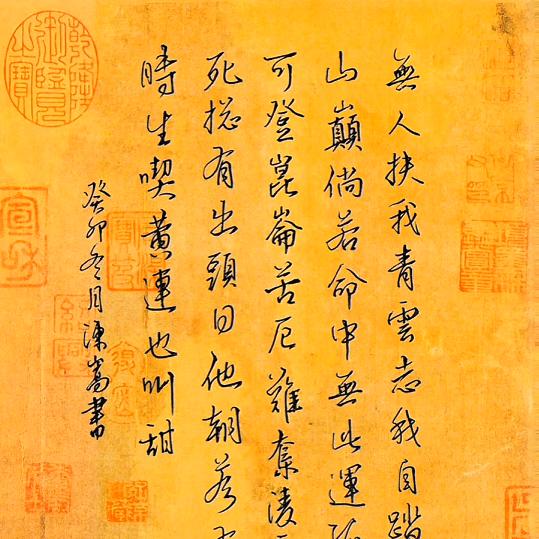 無人扶我青雲志我自踏
山巔倘若命中無此運
可登崑崙苦厄難奪凌
死揔有出頭日他朝若
時生喫黃連也叫甜
癸卯冬月陳嵩書